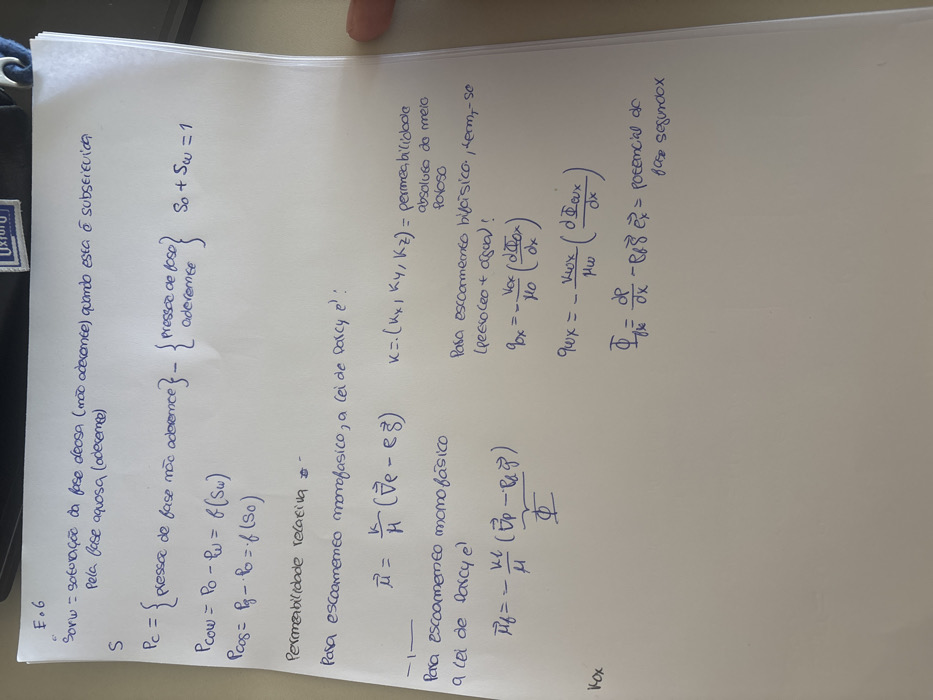 E.6
Sorw = saturação da fase oleosa (não aderente) quando esta é substituída
pela fase aquosa (aderente)
S
Pc = {pressão de fase não aderente} - {pressão de fase aderente} So + Sw = 1
Pcow = Po - Pw = f(Sw)
Pcog = Pg - Po = f(So)
Permeabilidade relativa
Para escoamento monofásico, a lei de Darcy é:
μ⃗ = K/μ (∇⃗p - ρg⃗)
K = (Kx, Ky, Kz) = permeabilidade
absoluta do meio
poroso
-1-
Para escoamento monofásico
a lei de Darcy é)
μ⃗f = - Kf/μ (∇⃗p - ρf g⃗)
Φ
Para escoamento bifásico, tem-se
(petróleo + água):
qox = - Kox/μo (dΦox/dx)
qwx = - Kwx/μw (dΦwx/dx)
Φfx = dp/dx - ρf g⃗ e⃗x = potencial da
fase segundo x
Kox
Oxford